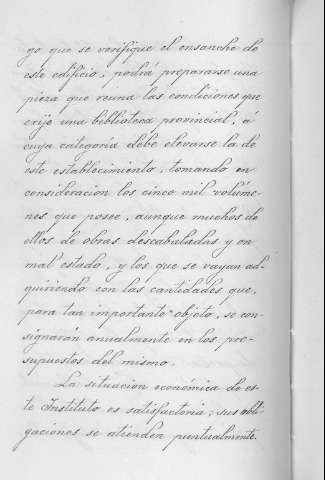 go que se verifique el ensanche de
este edificio, podrá prepararse una
pieza que reuna las condiciones que
exije una biblioteca provincial, á
cuya categoria debe elevarse la de
este establecimiento, tomando en
consideracion los cinco mil volúme-
nes que posee, aunque muchos de
ellos de obras descabaladas y en
mal estado, y los que se vayan ad-
quiriendo con las cantidades que,
para tan importante objeto, se con-
signarán anualmente en los pre-
supuestos del mismo.
La situacion económica de es-
te Instituto es satisfactoria; sus obli-
gaciones se atienden puntualmente.